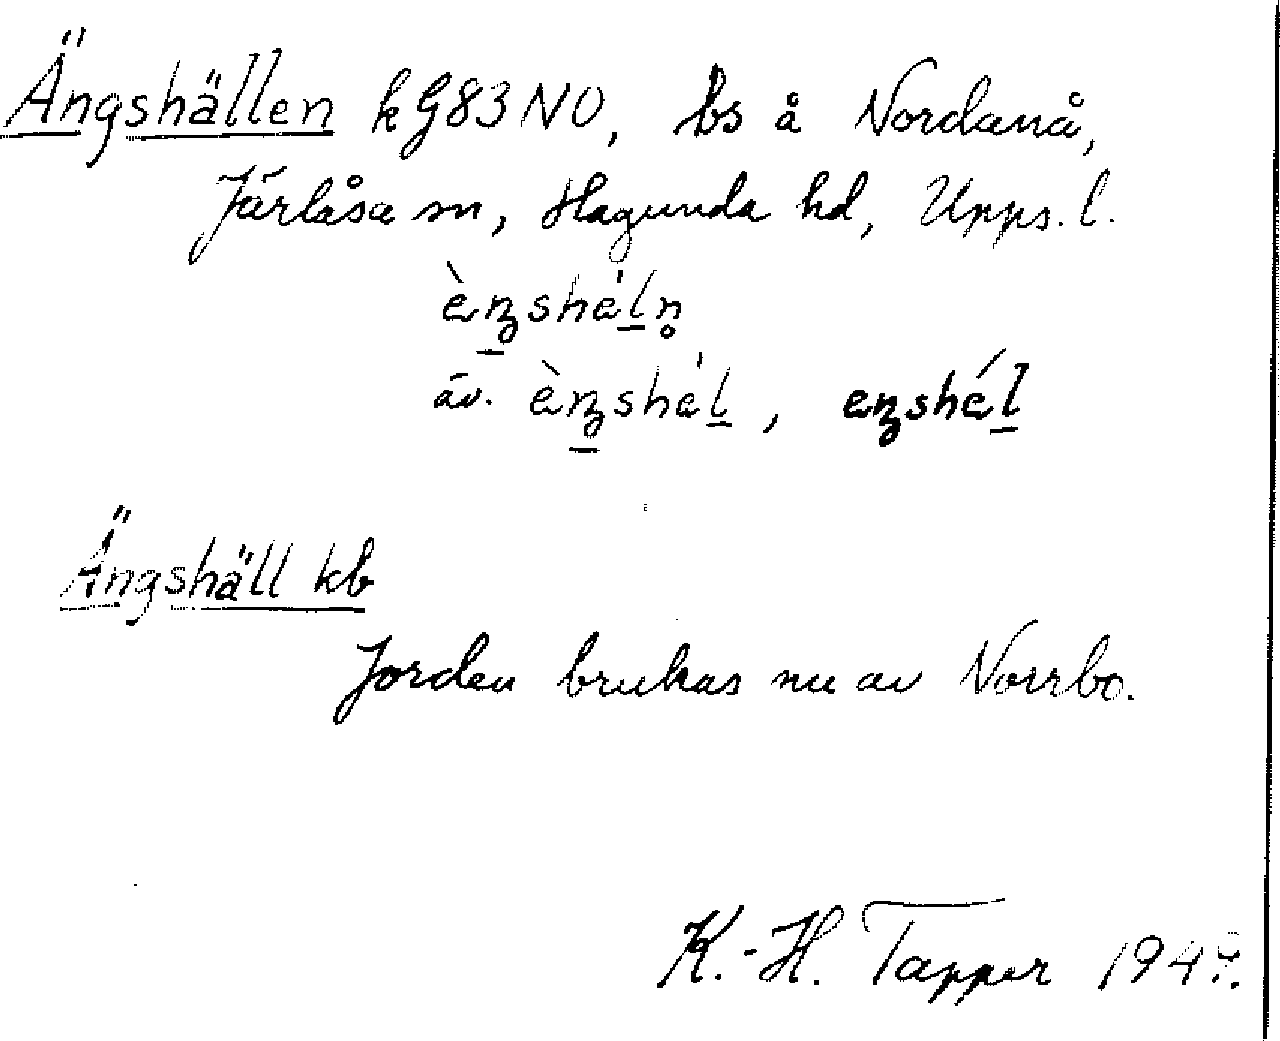 Ängshällen kG83NO, bs å Nordanå,
Järlåsa sn, Hagunda hd, Upps. l.
èŋshéln̥
äv. èŋshél, eŋshél
Ängshäll kb
Jorden brukas nu av Norrbo.
K.-H. Tapper